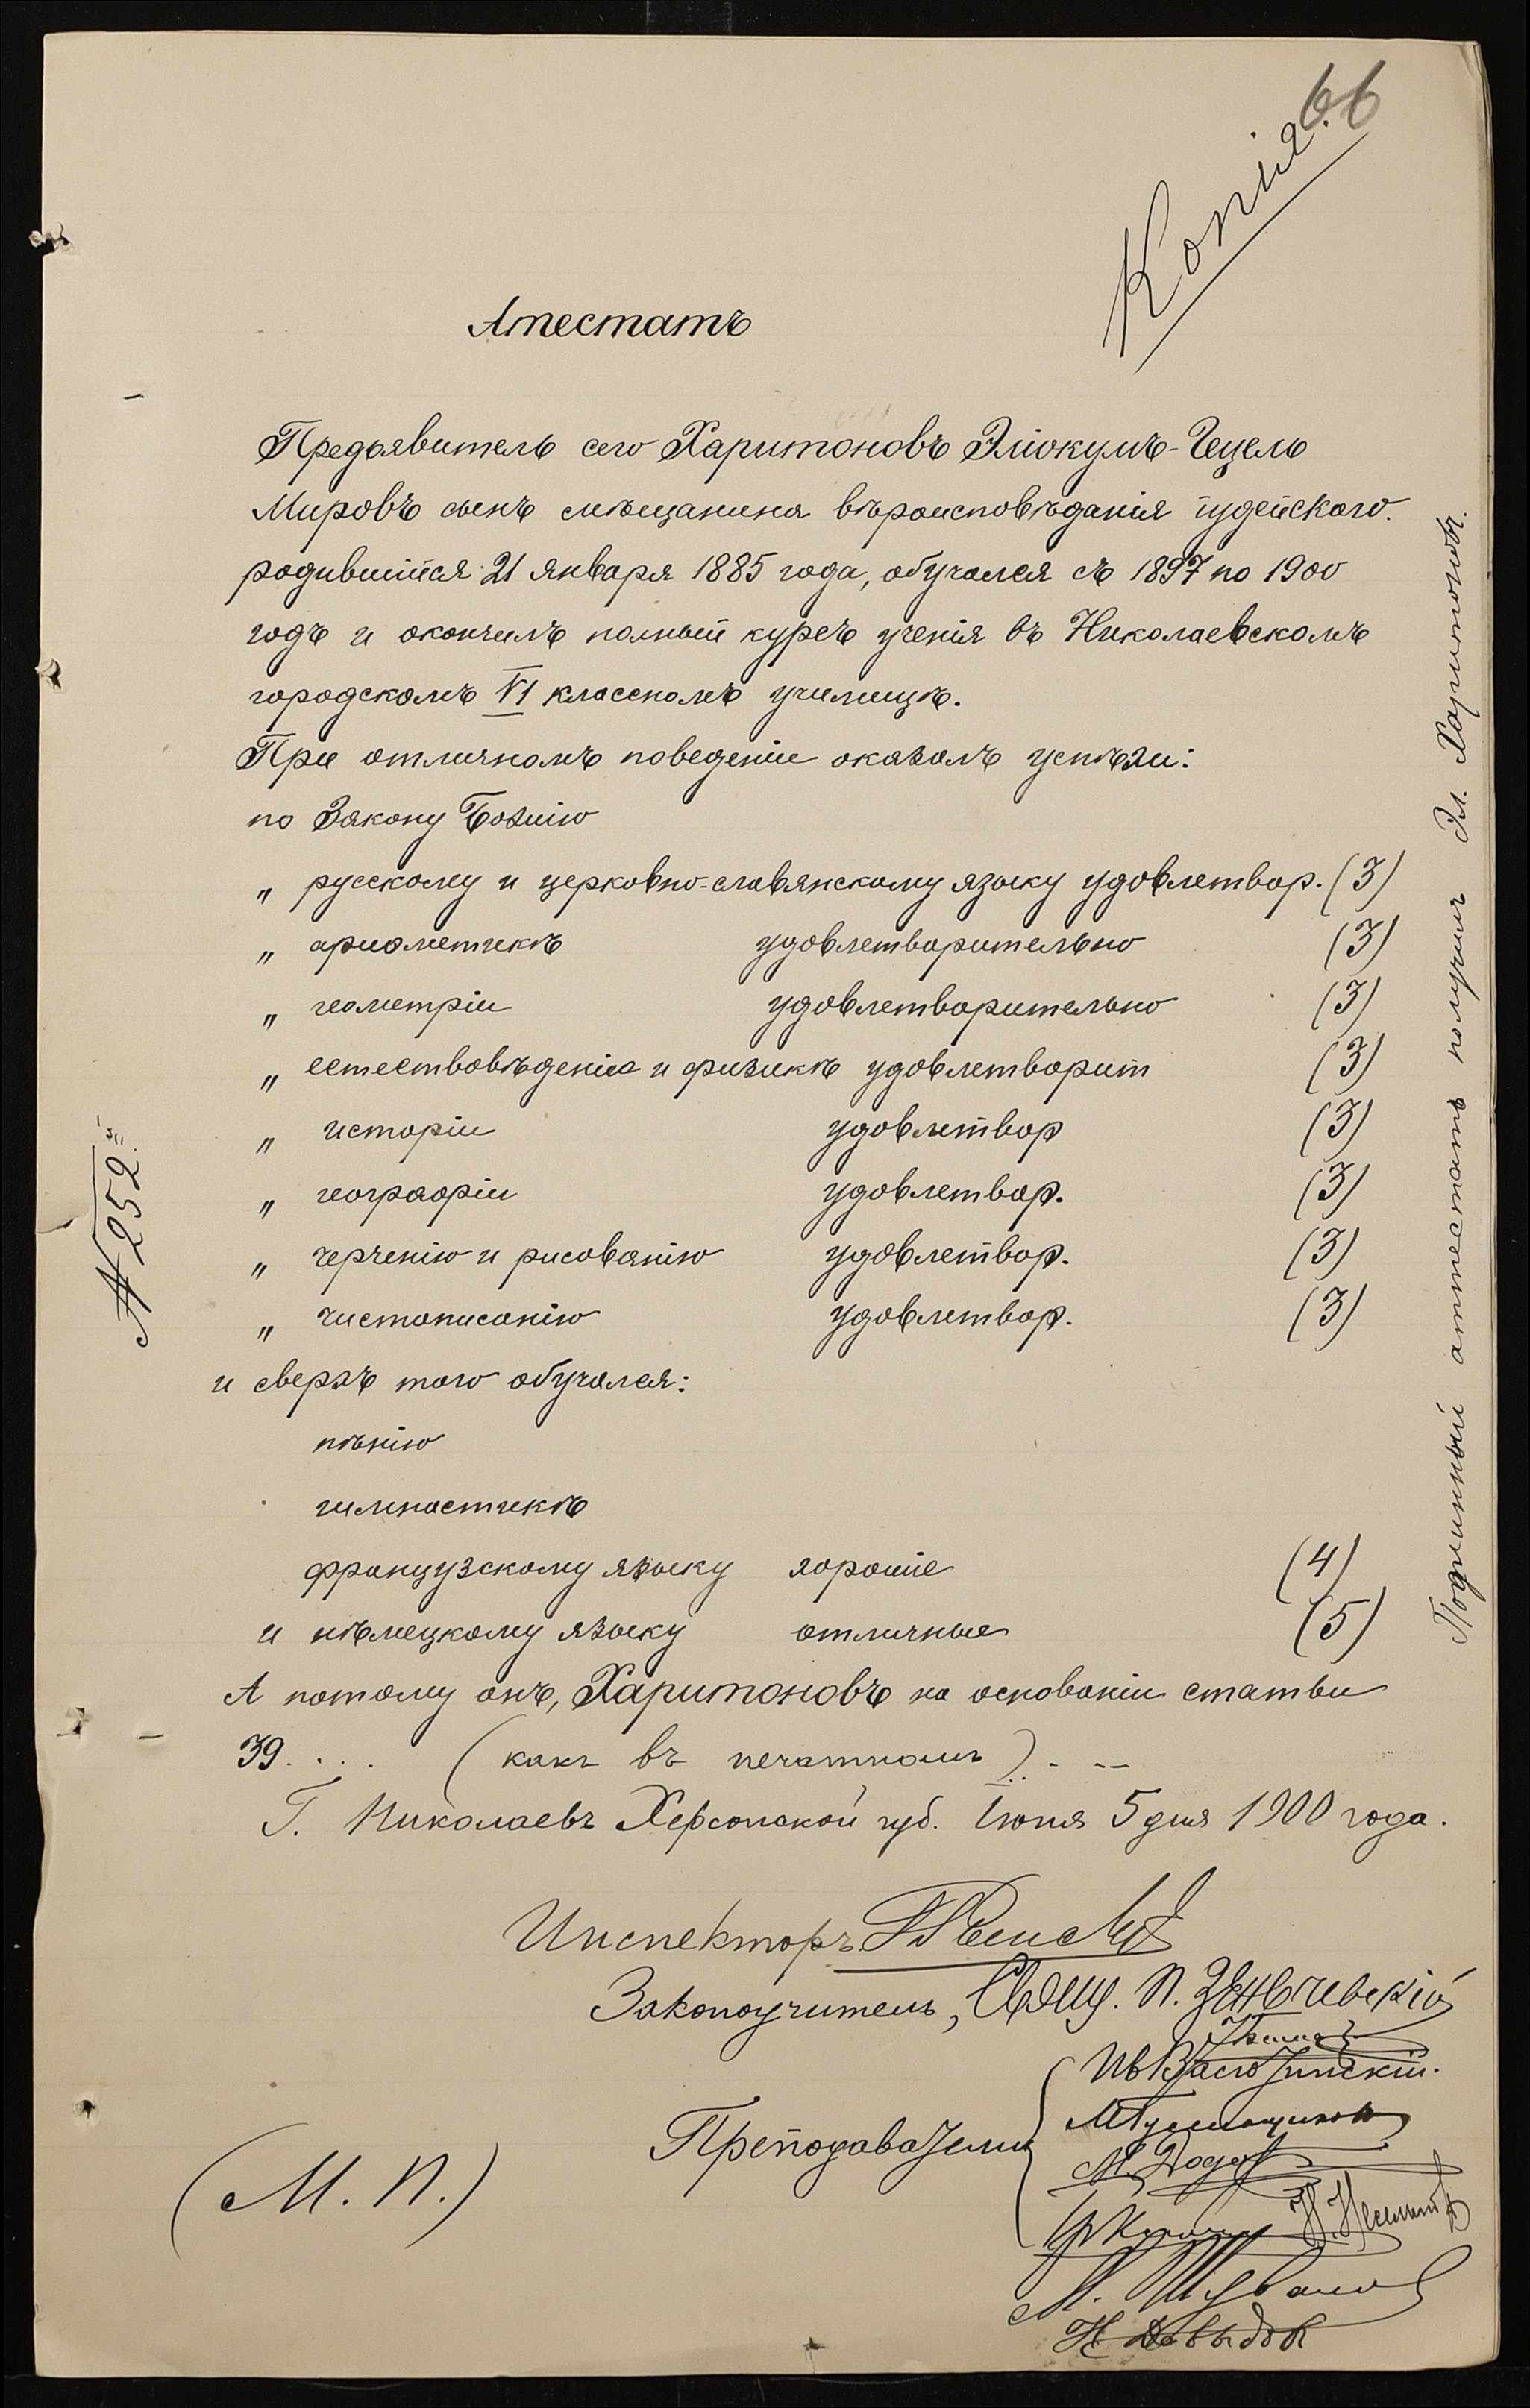 66
Копія.
Атестатъ
Предъявитель сего Харитоновъ Эліокумъ-Гецель
Мировъ сынъ мѣщанина вѣроисповѣданія іудейскаго.
родившійся 21 января 1885 года, обучался съ 1897 по 1900
годъ и окончилъ полный курсъ ученія въ Николаевскомъ
городскомъ VI классномъ училищѣ.
При отличномъ поведеніи оказалъ успѣхи:
по Закону Божію
„ русскому и церковно-славянскому языку удовлетвор. (3)
„ ариѳметикѣ удовлетворительно (3)
„ геометріи удовлетворительно (3)
„ естествовѣденію и физикѣ удовлетворит (3)
„ исторіи удовлетвор (3)
„ географіи удовлетвор. (3)
„ черченію и рисованію удовлетвор. (3)
„ чистописанію удовлетвор. (3)
и сверхъ того обучался:
пѣнію
гимнастикѣ
французскому языку хорошіе (4)
и нѣмецкому языку отличные (5)
А потому онъ, Харитоновъ на основаніи статьи
39.... (какъ въ печатномъ)...
Г. Николаевъ Херсонской губ. Іюня 5 дня 1900 года.
Инспекторъ
Законоучитель, Свящ. П.
Преподаватели
Н Давыдов
(М. П.)
№ 252.
Подлинный аттестатъ получилъ Эл. Харитоновъ.